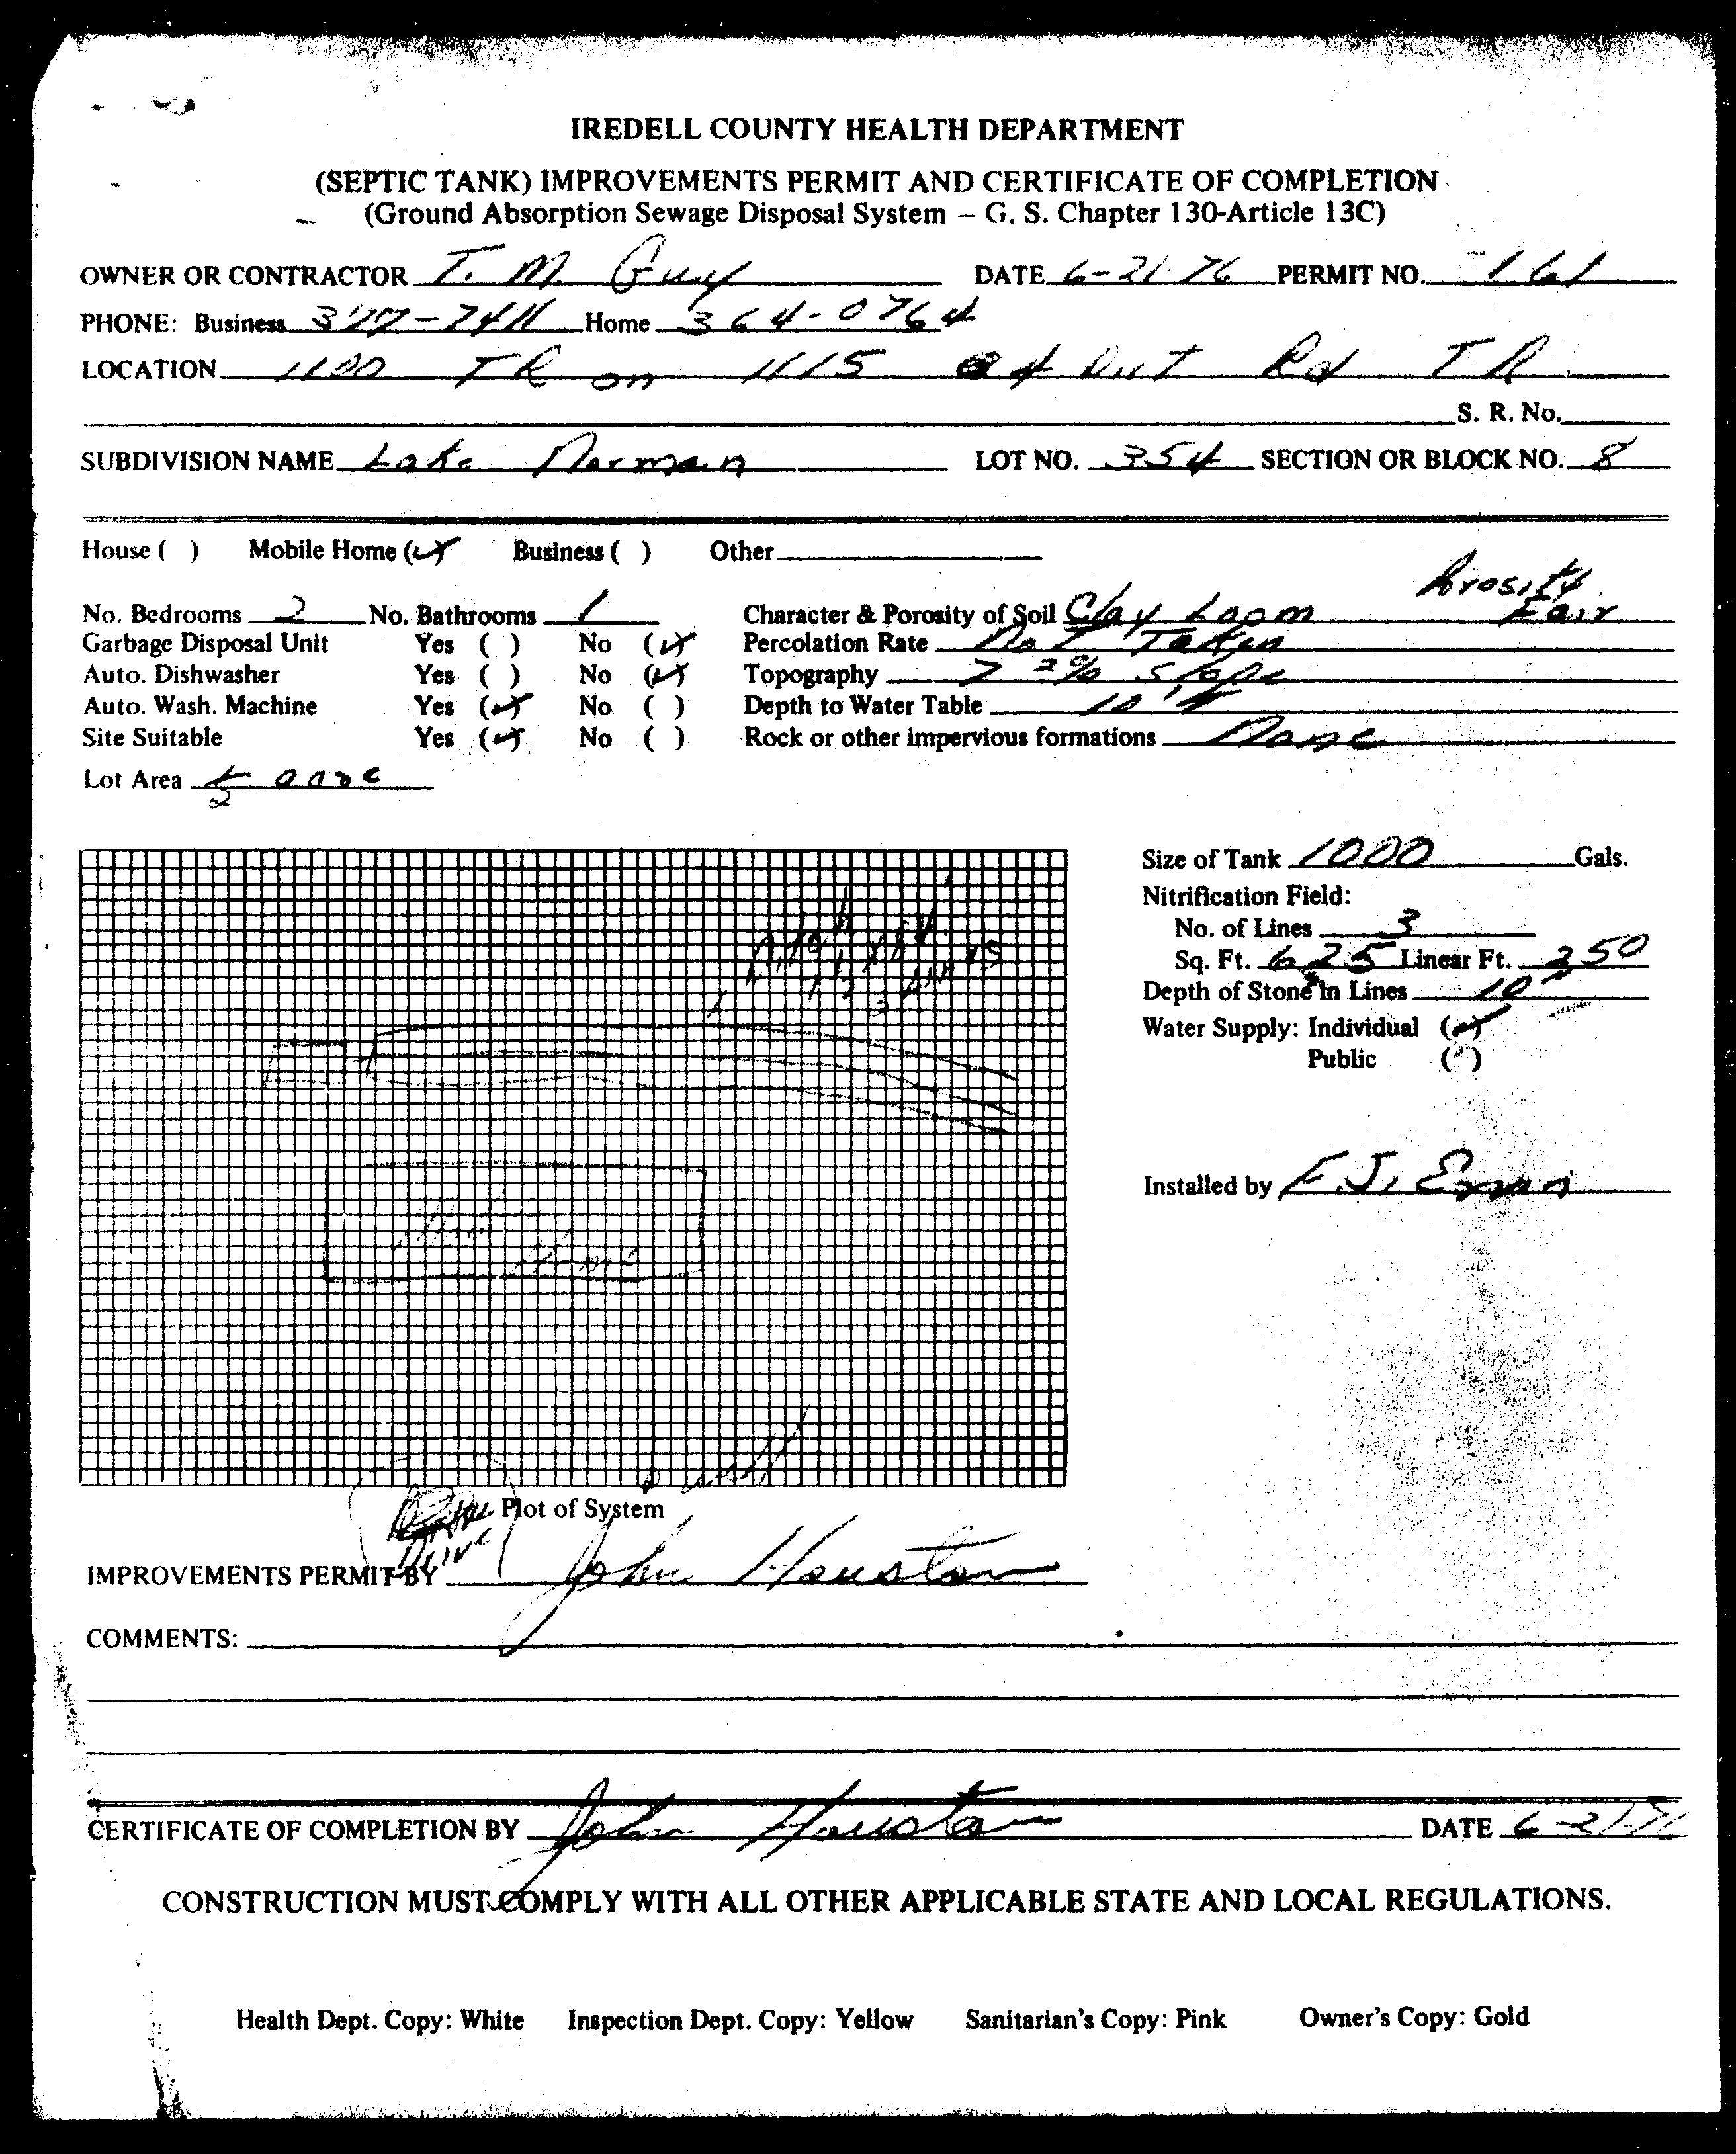 IREDELL COUNTY HEALTH DEPARTMENT
(SEPTIC TANK) IMPROVEMENTS PERMIT AND CERTIFICATE OF COMPLETION
(Ground Absorption Sewage Disposal System – G. S. Chapter 130-Article 13C)
OWNER OR CONTRACTOR T. M. Guy DATE 6-21-76 PERMIT NO. 161
PHONE: Business 377-7411 Home 364-0764
LOCATION 1100 TR on 1115 Rd TR
S. R. No.
SUBDIVISION NAME Lake Norman LOT NO. 354 SECTION OR BLOCK NO. 8
House ( ) Mobile Home (✓) Business ( ) Other
Porosity
No. Bedrooms 2 No. Bathrooms 1 Character & Porosity of Soil Clay Loom Fair
Garbage Disposal Unit Yes ( ) No (✓) Percolation Rate Not Taken
Auto. Dishwasher Yes ( ) No (✓) Topography > 2% Slope
Auto. Wash. Machine Yes (✓) No ( ) Depth to Water Table 10'
Site Suitable Yes (✓) No ( ) Rock or other impervious formations None
Lot Area 1/2 acre
Size of Tank 1000 Gals.
Nitrification Field:
No. of Lines 3
Sq. Ft. 625 Linear Ft. 250
Depth of Stone in Lines 10"
Water Supply: Individual (✓)
Public ( )
Installed by
Home
Plot of System
Drive
IMPROVEMENTS PERMIT BY John Houston
COMMENTS:
CERTIFICATE OF COMPLETION BY John Houston DATE 6-21-76
CONSTRUCTION MUST COMPLY WITH ALL OTHER APPLICABLE STATE AND LOCAL REGULATIONS.
Health Dept. Copy: White Inspection Dept. Copy: Yellow Sanitarian's Copy: Pink Owner's Copy: Gold